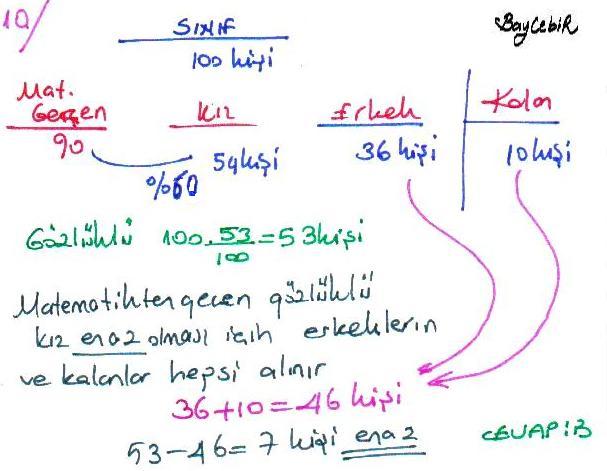 10/
SINIF
BayCebiR
100 kişi
Mat. Geçen
Kız
Erkek
Kalan
90
54 kişi
36 kişi
10 kişi
%60
Gözlüklü 100.53/100=53kişi
Matematikten geçen gözlüklü
kız en az olması için erkeklerin
ve kalanlar hepsi alınır
36+10=46 kişi
53-46=7 kişi en az
CEVAP:B